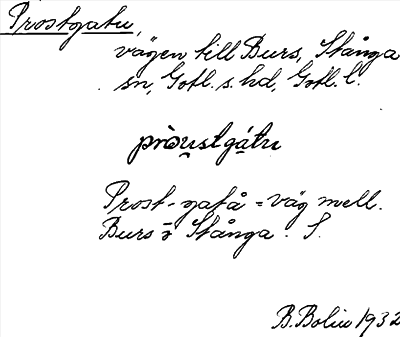 Prostgatu,
vägen till Burs, Stånga
sn, Gotl. s. hd, Gotl. l.
pròu̯stgá̱tu
Prost-gatå = väg mell.
Burs o Stånga. S.
B. Bolin 1932